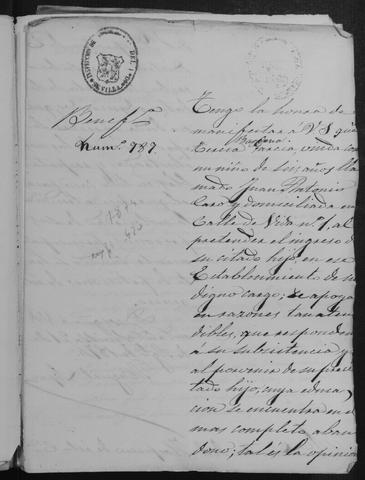 Benef.ª
Num.º 787.
1874
Tengo la honra de
manifestar á V S que
Teresa Barbena Garcia, viuda con
un niño de seis años lla
mado Juan Antonio
Caro y domiciliada en
Calle de Vida nº 1, al
pretender el ingreso de
su citado hijo, en ese
Establecimiento de su
digno cargo; se apoya
en razones tan aten
dibles, que responden
á su subsistencia y
al porvenir de su preci
tado hijo, cuya educa
cion se encuentra en el
mas completo aban
dono; tal es la opinion